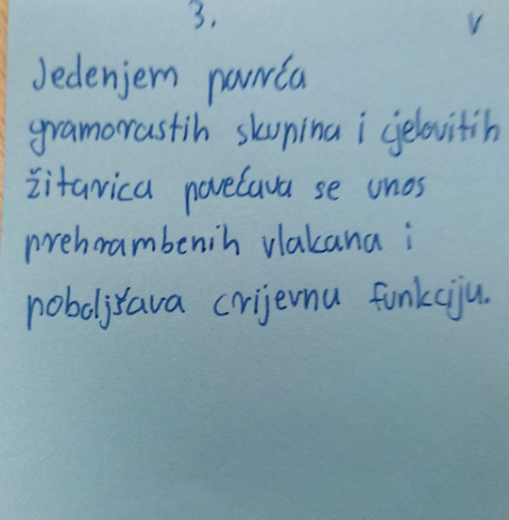 3. v
Jedenjem povrća
gramorastih skupina i cjelovitih
žitarica povećava se unos
prehrambenih vlakana i
poboljšava crijevnu funkciju.